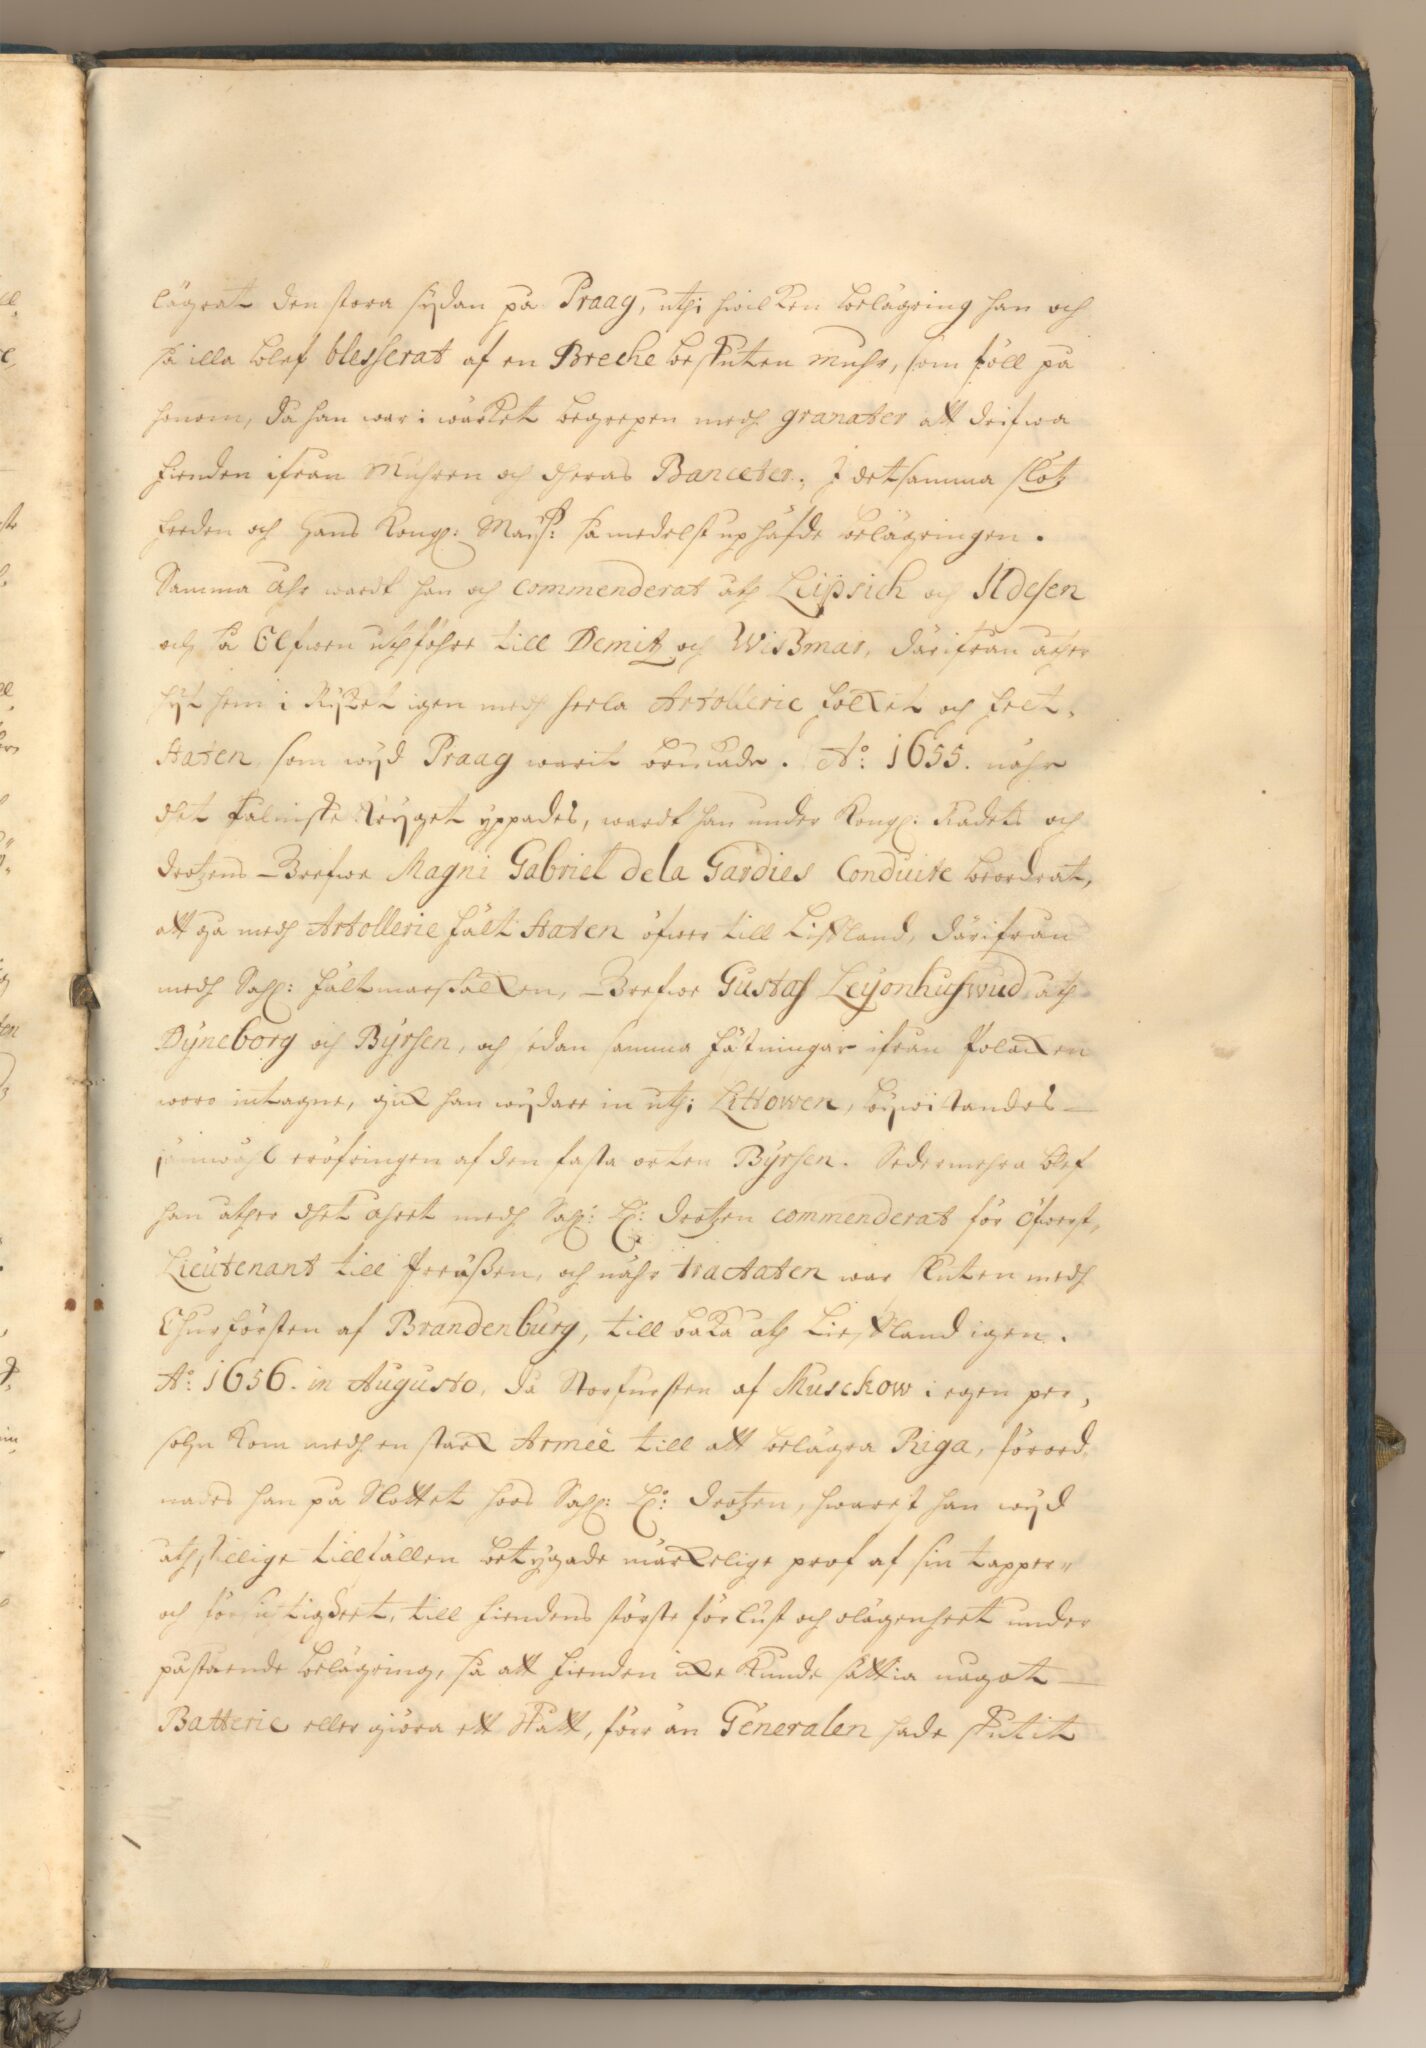 lägrat den stora sydan på Praag, uthi hwilken belägring han och
så illa blef blesserat af en Breche beskuten Muhr, som föll på
honom, då han war i wärket begrepen medh granater att drifwa
fienden ifrån Muhren och deras Banceter, I detsamma slöts
freden och Hans Kongl: Maijt: så medelst uphäfde belägringen.
Samma åhr wardt han och commenderat åth Leipsich och
och så Elfwen uthföhre till Demitz och Wißmar, därifrån åther
hyt hem i Rijket igen medh heela Artollerie folket och felt,
Staten, som wijd Praag warit brukade. Ao: 1655. nähr
dhet Palniske Kryget yppades, wardt han under Kongl: Rådets och
drotzens Grefwe Magni Gabriel de la Gardies Conduite beordrat,
att gå medh Artollerie fält Staten öfwer till Liffland, därifrån
medh Sahl: fältmarskalken, Grefwe Gustaf Leyonhufwud åth
Dyneborg och Byrsen, och sedan samma fästningar ifrån Polacken
woro intagne, gick han wydare in uthi Littowen, bijwistandes
jämwähl eröfringen af den fasta orten Byrsen. Sedermehra blef
han åther dhet åhret medh Sahl: H: drotzen commenderat för Öfwerst,
Lieutenant till Preüßen, och nähr tractaten war sluten medh
Churförsten af Brandenburg, till baka åth Lieffland igen.
Ao: 1656. in Augusto, då Storfursten af Musckow i egen per,
sohn kom medh en stark Armée till att belägra Riga, förord,
nades han på Slottet hoos Sahl: H: drotzen, hwarest han wijd
åthskillige tillfällen betygade märkelige prof af sin tapper-
och försichtigheet, till fiendens störste förlust och olägenheet under
påstående belägring, så att fienden icke kunde sättia något
Batterie eller giöra ett skått, förr än Generalen hade skutit